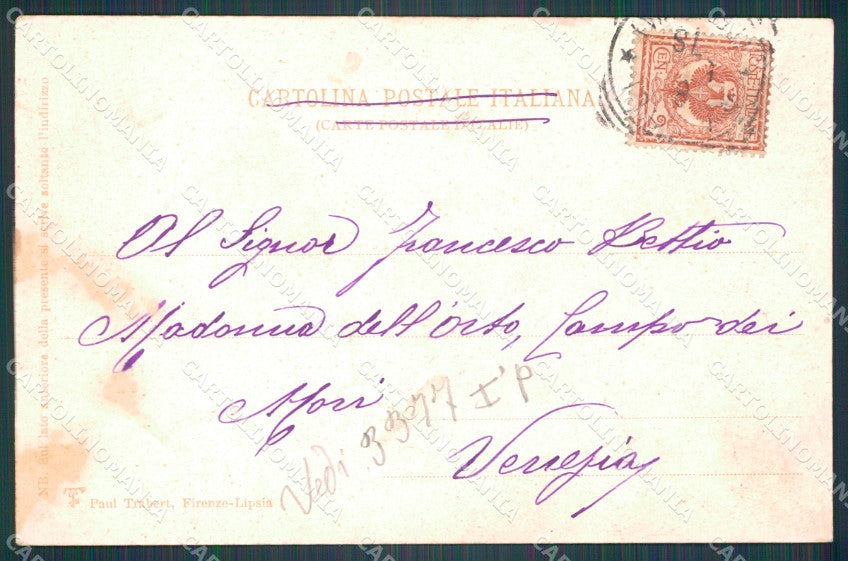 CARTOLINA POSTALE ITALIANA
(CARTE POSTALE D'ITALIE)
Al Signor Francesco Bettio
Madonna dell'Orto, Campo dei
Mori
Venezia
Vedi 3377 I°P
NB. sul lato anteriore della presente si scrive soltanto l'indirizzo
Paul Trabert, Firenze-Lipsia
CARTOLINOMANIA